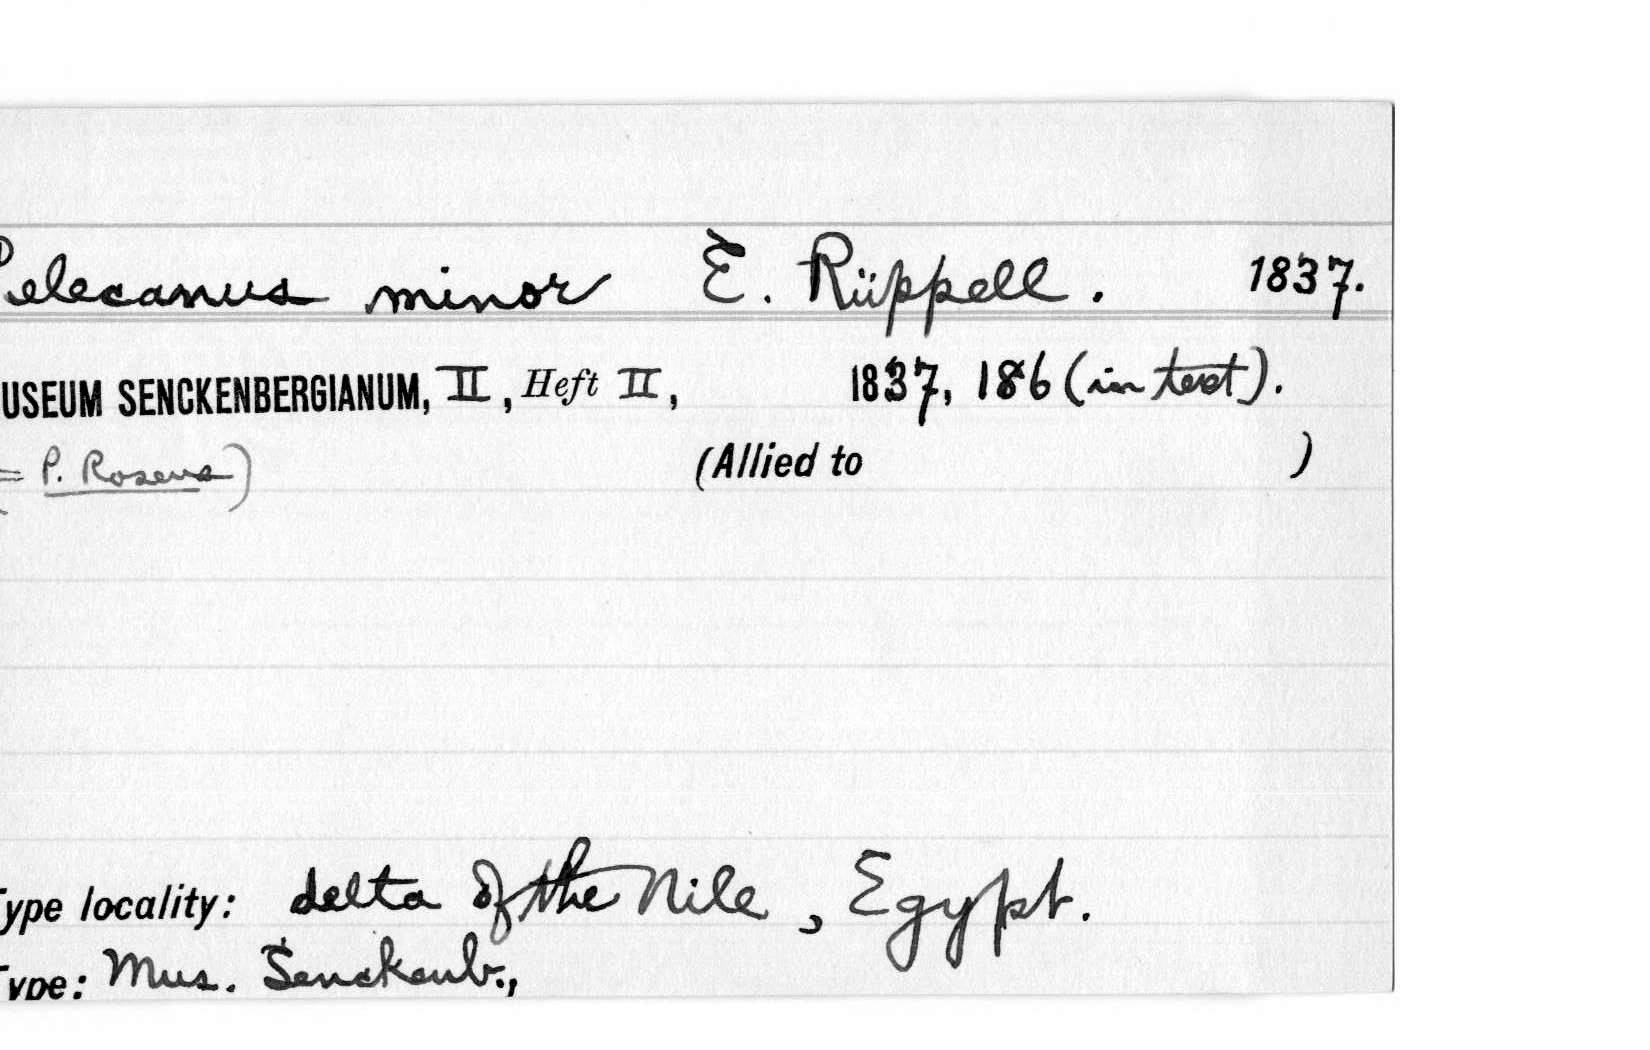 Pelecanus minor E. Rüppell. 1837.
USEUM SENCKENBERGIANUM, II, Heft II, 1837, 186 (in text).
(= P. Roseus) (Allied to )
Type locality: delta of the Nile, Egypt.
Type: Mus. Senckenb.,